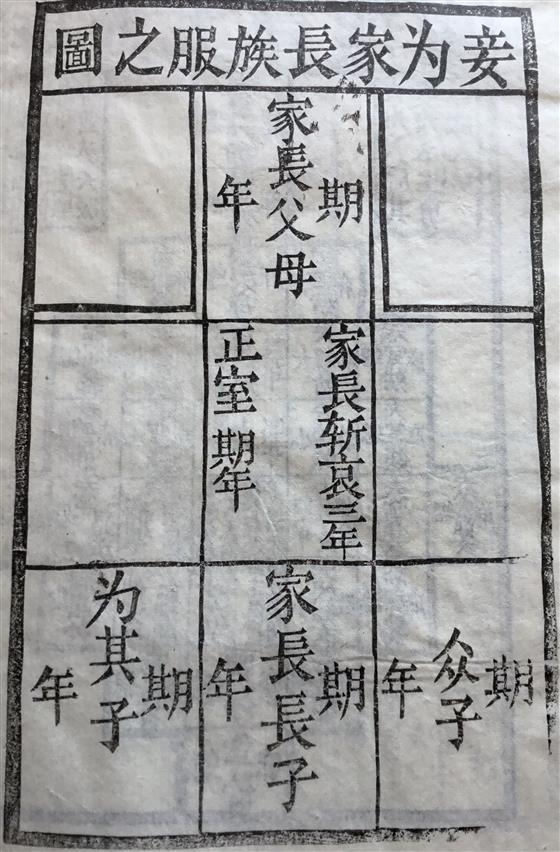 妾为家長族服之圖
家長父母
期年
家長斩衰三年
正室期年
众子
期年
家長長子
期年
为其子
期年